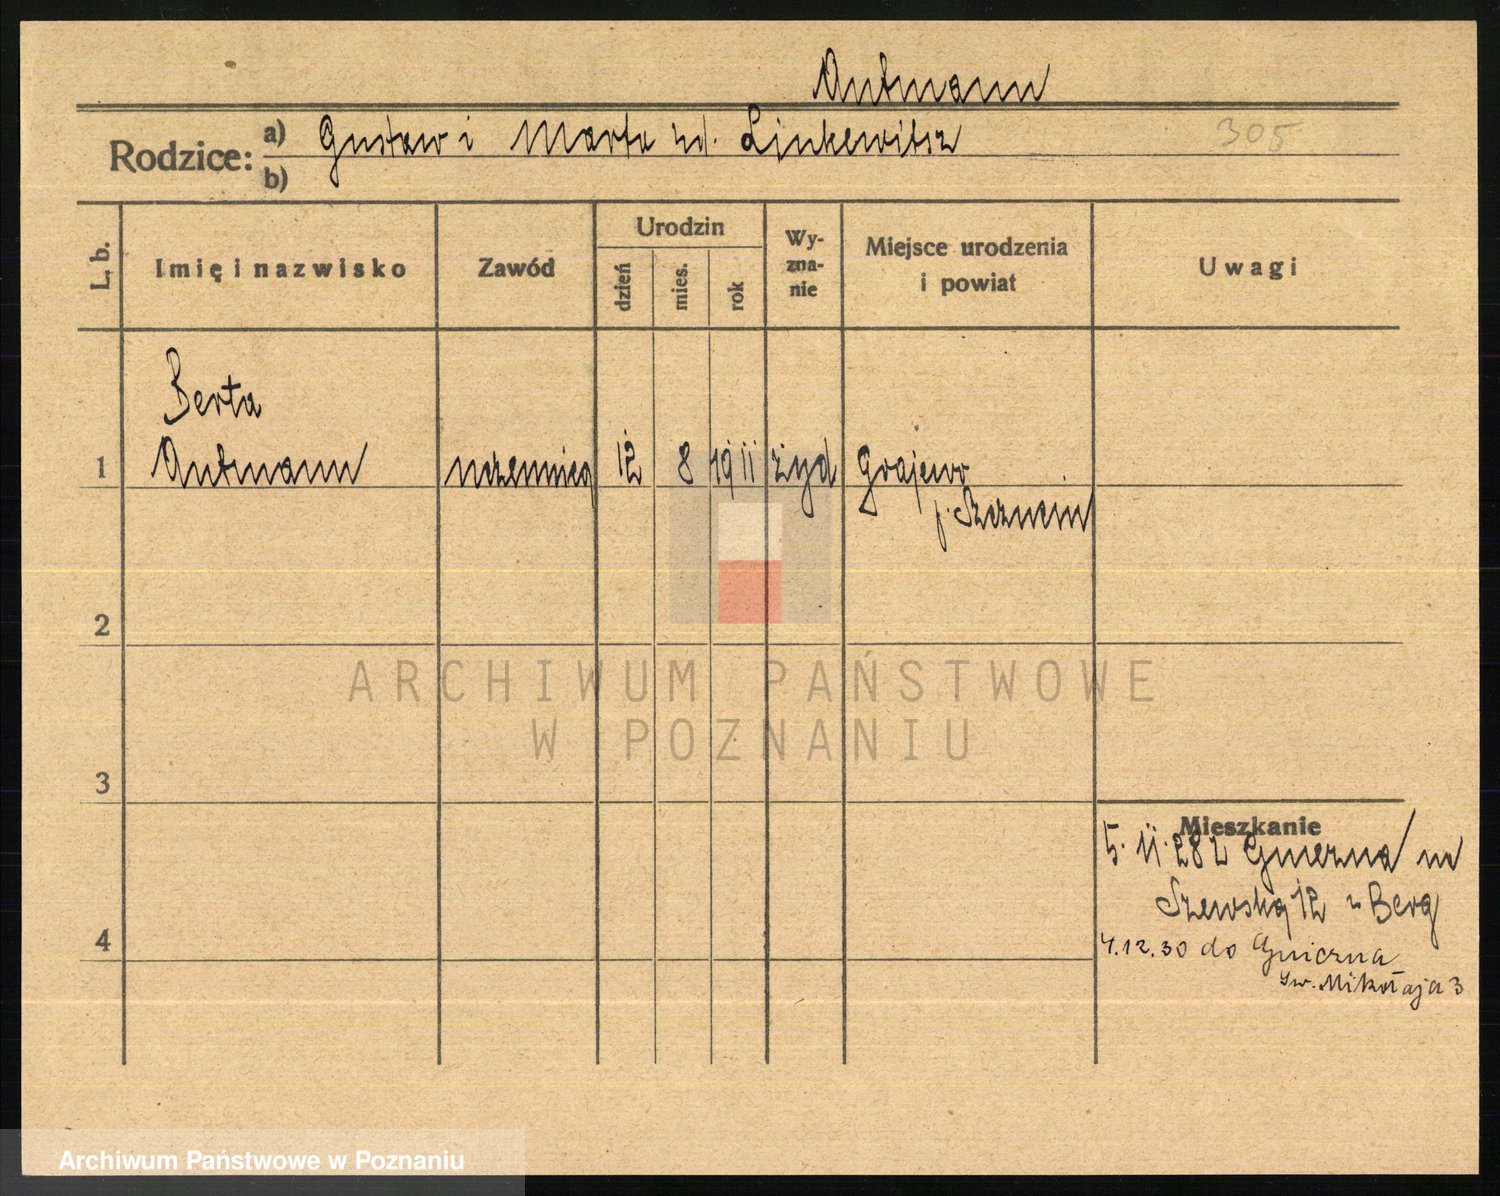 Autmann
Rodzice: a) Gustaw i Marta zd. Linkewitsz
305
b)
L. b.
Imię i nazwisko
Zawód
Urodzin
dzień
mies.
rok
Wy-
zna-
nie
Miejsce urodzenia
i powiat
Uwagi
Berta
1 Autmann uczennica 12 8 1911 żyd Grajewo
p. Szczucin
2
ARCHIWUM PAŃSTWOWE
W POZNANIU
3
Mieszkanie
5.11.28 z Gniezna
Szewska 12 u Berg
4
4.12.30 do Gniezna
Św. Mikołaja 3
Archiwum Państwowe w Poznaniu